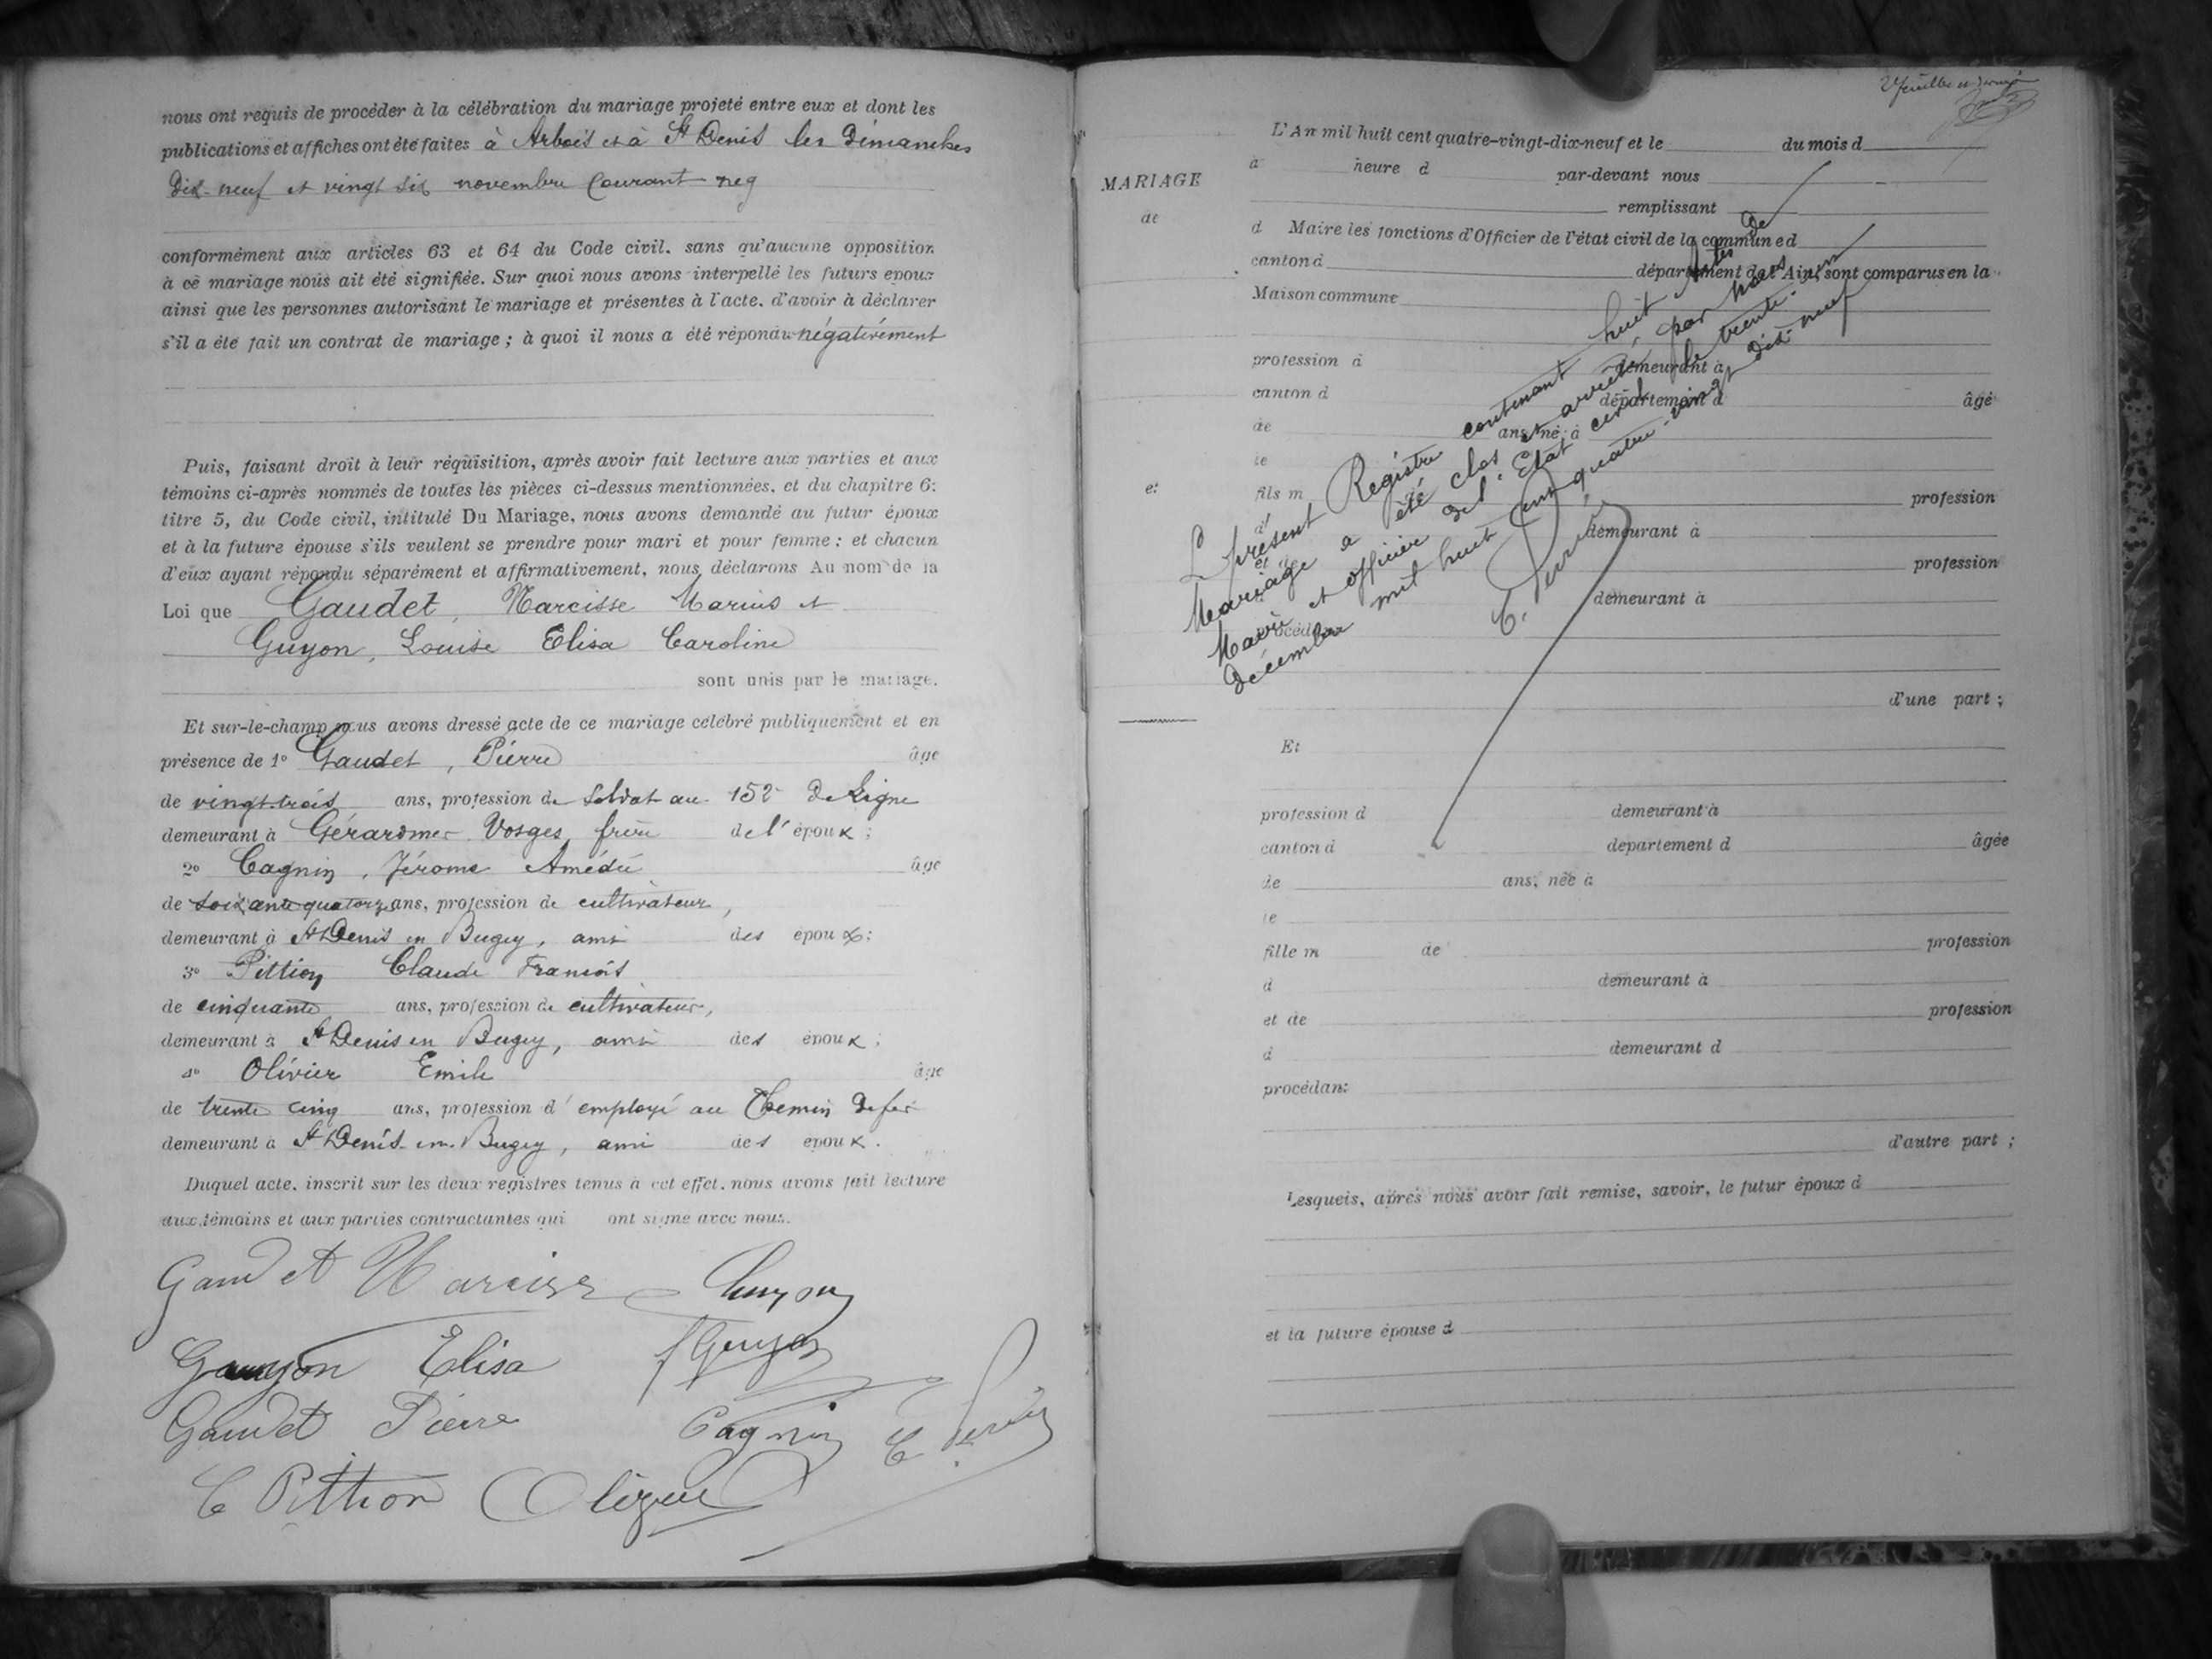 nous ont requis de procéder à la célébration du mariage projeté entre eux et dont les
publications et affiches ont été faites à Arbois et à St Denis les Dimanches
dix-neuf et vingt six novembre courant
conformément aux articles 63 et 64 du Code civil. sans qu'aucune opposition
à ce mariage nous ait été signifiée. Sur quoi nous avons interpellé les futurs epoux
ainsi que les personnes autorisant le mariage et présentes à l'acte. d'avoir à déclarer
s'il a été fait un contrat de mariage ; à quoi il nous a été répondu négativement
Puis, faisant droit à leur réquisition, après avoir fait lecture aux parties et aux
témoins ci-après nommés de toutes les pièces ci-dessus mentionnées. et du chapitre 6.
titre 5, du Code civil, intitulé Du Mariage, nous avons demandé au futur époux
et à la future épouse s'ils veulent se prendre pour mari et pour femme ; et chacun
d'eux ayant répondu séparément et affirmativement, nous déclarons Au nom de la
Loi que Gaudet, Narcisse Marius et
Guyon, Louise Elisa Caroline
sont unis par le mariage.
Et sur-le-champ nous avons dressé acte de ce mariage célébré publiquement et en
présence de 1° Gaudet, Pierre âgé
de vingt-trois ans, profession de soldat au 152e De Ligne
demeurant à Gérardmer Vosges, frère de l'époux ;
2° Cagnin, Jérome Amédée âgé
de soixante quatorze ans, profession de cultivateur,
demeurant à St Denis en Bugey, ami des époux ;
3° Pittion Claude François
de cinquante ans, profession de cultivateur,
demeurant à St Denis en Bugey, ami des époux ;
4° Olivier Emile âgé
de trente cinq ans, profession d'employé au Chemin de fer
demeurant à St Denis-en-Bugey, ami des époux.
Duquel acte. inscrit sur les deux registres tenus à cet effet. nous avons fait lecture
aux témoins et aux parties contractantes qui ont signé avec nous.
Gaudet Narcisse Guyon
Guyon Elisa Guyon
Gaudet Pierre Cagnin
C Pittion
MARIAGE
de
et
L'An mil huit cent quatre-vingt-dix-neuf et le du mois d
à heure d par-devant nous
remplissant
d Maire les fonctions d'Officier de l'état civil de la commune d
canton d département de l'Ain, sont comparus en la
Maison commune
profession d demeurant à
canton d département d âgé
de ans, né à
le
fils m de profession
d demeurant à
et de profession
d demeurant à
procédan
d'une part ;
Le présent Registre contenant huit Actes de
Mariage a été clos et arrêté, par nous
Maire et officier de l'Etat civil le trente-un
décembre mil huit cent quatre-vingt dix-neuf
Et
profession d demeurant à
canton d département d âgée
de ans, née à
le
fille m de profession
d demeurant à
et de profession
d demeurant d
procédan
d'autre part ;
Lesquels, après nous avoir fait remise, savoir, le futur époux d
et la future épouse d